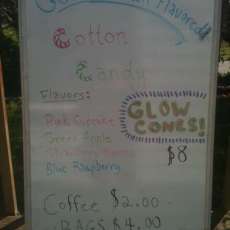 Flavored
Cotton
Candy
Flavors:
Pink Cupcake
Green Apple
Strawberry
Blue Raspberry
GLOW
CONES!
$8
Coffee $2.00
BAGS $4.00